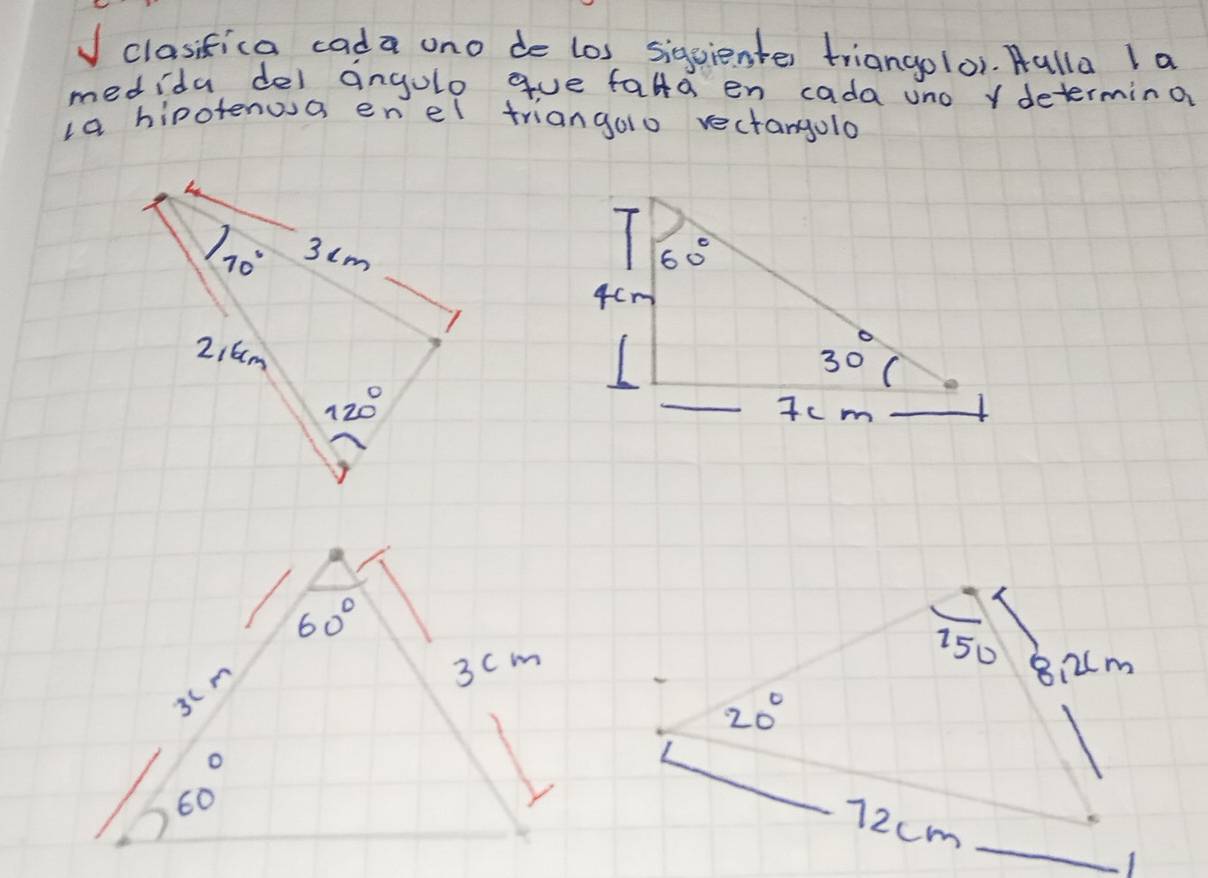 √ clasifica cada uno de los siguientes triangulos. Halla la
medida del ángulo que falta en cada uno y determina
la hipotenusa en el triangulo rectangulo
10° 3cm
60°
4cm
30°
120°
7cm
60°
3cm
3cm
60°
150
8,2cm
20°
12cm